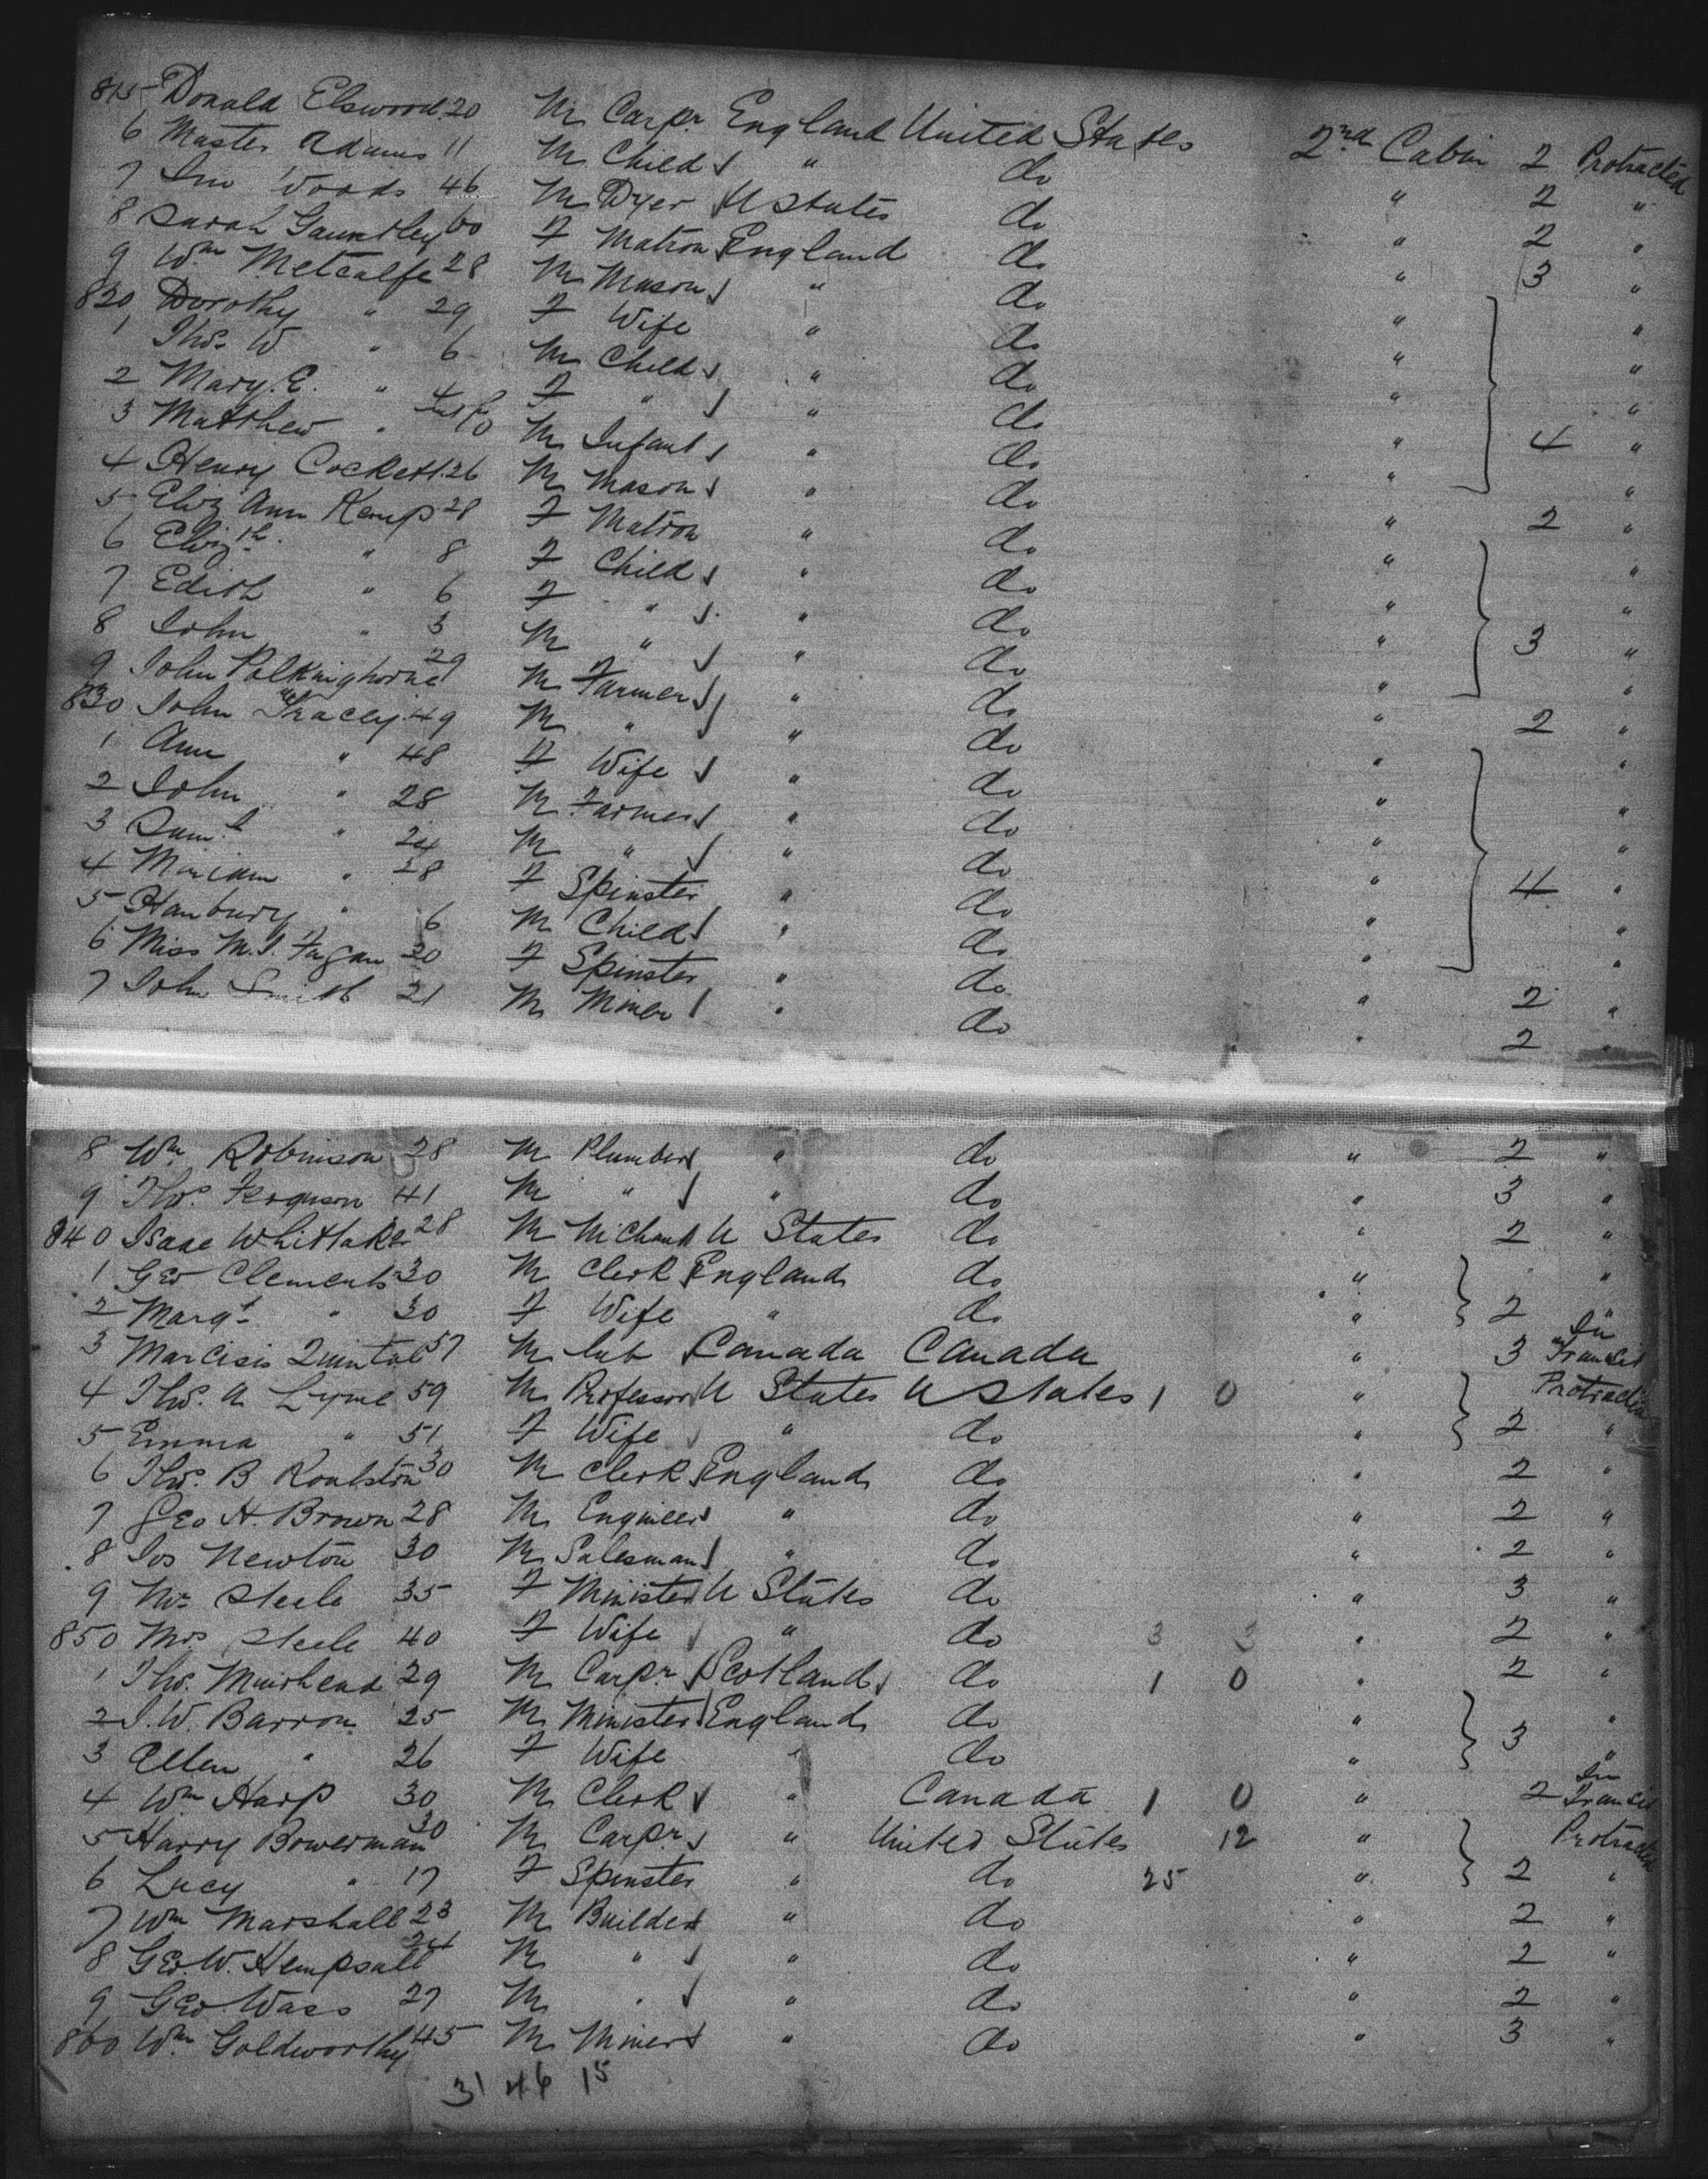 815 Donald Elswood 20 M Carpr England United States 2nd Cabin 2 Protracted
6 Master Adams 11 M Child " do " 2 "
7 Jno Woods 46 M Dyer U States do " 2 "
8 Sarah Gauntley 60 F Matron England do " 3 "
9 Wm Metcalfe 28 M Mason " do " "
820 Dorothy " 29 F Wife " do " "
1 Thos W " 6 M Child " do " "
2 Mary E. " 4 F " " do " 4 "
3 Matthew " M Infant " do " "
4 Henry Cockett 26 M Mason " do " 2 "
5 Eliz Ann Kemp 28 F Matron " do " "
6 Elizth " 8 F Child " do " "
7 Edith " 6 F " " do " 3 "
8 John " 3 M " " do " "
9 John Polkinghorne 29 M Farmer " do " 2 "
830 John Tracey 49 M " " do " "
1 Ann " 48 F Wife " do " "
2 John " 28 M Farmer " do " "
3 Saml " 24 M " " do " 4 "
4 Miriam " 28 F Spinster " do " "
5 Hanbury " 6 M Child " do " "
6 Miss M.J. Fagan 20 F Spinster " do " 2 "
7 John Smith 21 M Miner " do " 2 "
8 Wm Robinson 28 M Plumber " do " 2 "
9 Thos. Ferguson 41 M " " do " 3 "
840 Isaac Whittaker 28 M U States do " 2 "
1 Geo Clements 30 M Clerk England do " "
2 Margt " 30 F Wife " do " 2 "
3 Marcisis Quintal 57 M lab Canada Canada " 3 In Transit
4 Thos. A Lyme 59 M Professor U States U States 1 0 " Protracted
5 Emma " 51 F Wife " do " 2 "
6 Thos. B Roulston 30 M Clerk England do " 2 "
7 Geo H. Brown 28 M Engineer " do " 2 "
8 Jos Newton 30 M Salesman " do " 2 "
9 Mr Steele 35 F Minister U States do " 3 "
850 Mrs Steele 40 F Wife " do 3 3 " 2 "
1 Thos. Muirhead 29 M Carpr Scotland do 1 0 " 2 "
2 J.W. Barron 25 M Minister England do " "
3 Ellen " 26 F Wife " do " 3 "
4 Wm Harp 30 M Clerk " Canada 1 0 " 2 In Transit
5 Harry Bowerman 30 M Carpr " United States 12 " Protracted
6 Lucy " 17 F Spinster " do 25 " 2 "
7 Wm Marshall 23 M Builder " do " 2 "
8 Geo. W. Hempsall 24 M " " do " 2 "
9 Geo Wass 27 M " " do " 2 "
860 Wm Goldworthy 45 M Miner " do " 3 "
31 46 15